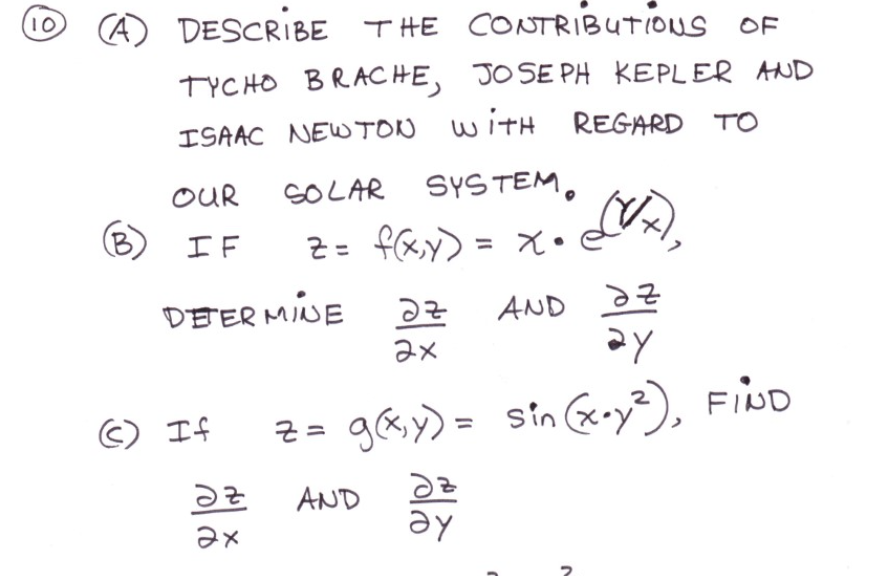 (10) (A) DESCRIBE THE CONTRIBUTIONS OF
TYCHO BRACHE, JOSEPH KEPLER AND
ISAAC NEWTON WITH REGARD TO
OUR SOLAR SYSTEM.
(B) IF z = f(x,y) = x · e^(y/x),
DETERMINE ∂z/∂x AND ∂z/∂y
(C) If z = g(x,y) = sin(x·y²), FIND
∂z/∂x AND ∂z/∂y